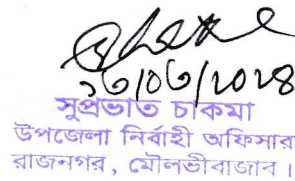 ২৩/০৬/২০২৪
সুপ্রভাত চাকমা
উপজেলা নির্বাহী অফিসার
রাজনগর, মৌলভীবাজার।